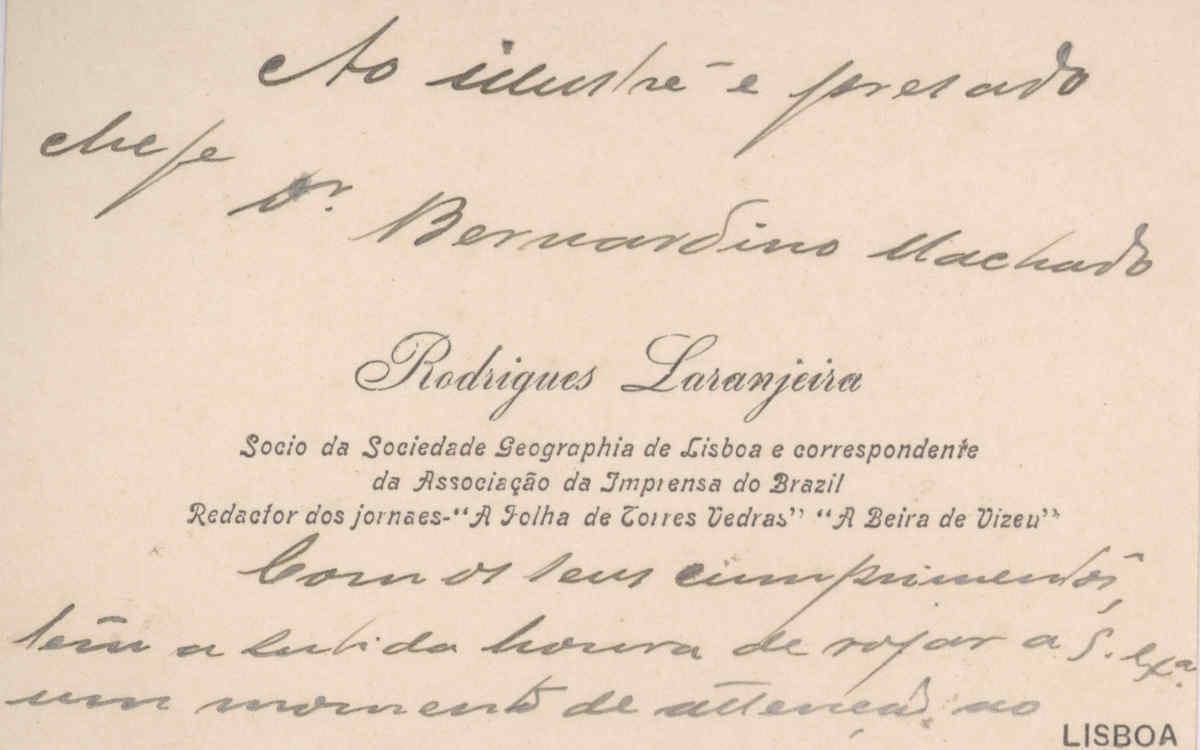 Ao illustre e presado
chefe
Dr. Bernardino Machado
Rodrigues Laranjeira
Socio da Sociedade Geographia de Lisboa e correspondente
da Associação da Imprensa do Brazil
Redactor dos jornaes-"A Folha de Torres Vedras" "A Beira de Vizeu"
Com os seus cumprimentos,
tem a subida honra de rogar a S. Exª.
um momento de attenção ao
LISBOA